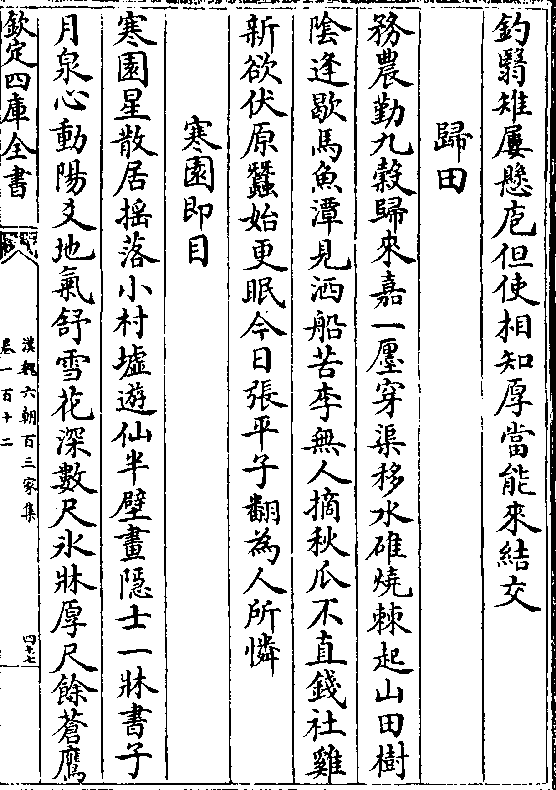 釣翳雉屢懸庖但使相知厚當能來結交
歸田
務農勤九榖歸來嘉一廛穿渠移水碓燒棘起山田樹
陰逢歇馬魚潭見洒船苦李無人摘秋瓜不直錢社雞
新欲伏原蠶始更眠今日張平子翻為人所憐
寒園即目
寒園星散居揺落小村墟遊仙半壁畫隠士一牀書子
月泉心動陽爻地氣舒雪花深數尺氷牀厚尺餘蒼鷹
欽定四庫全書
漢魏六朝百三家集
卷一百十二